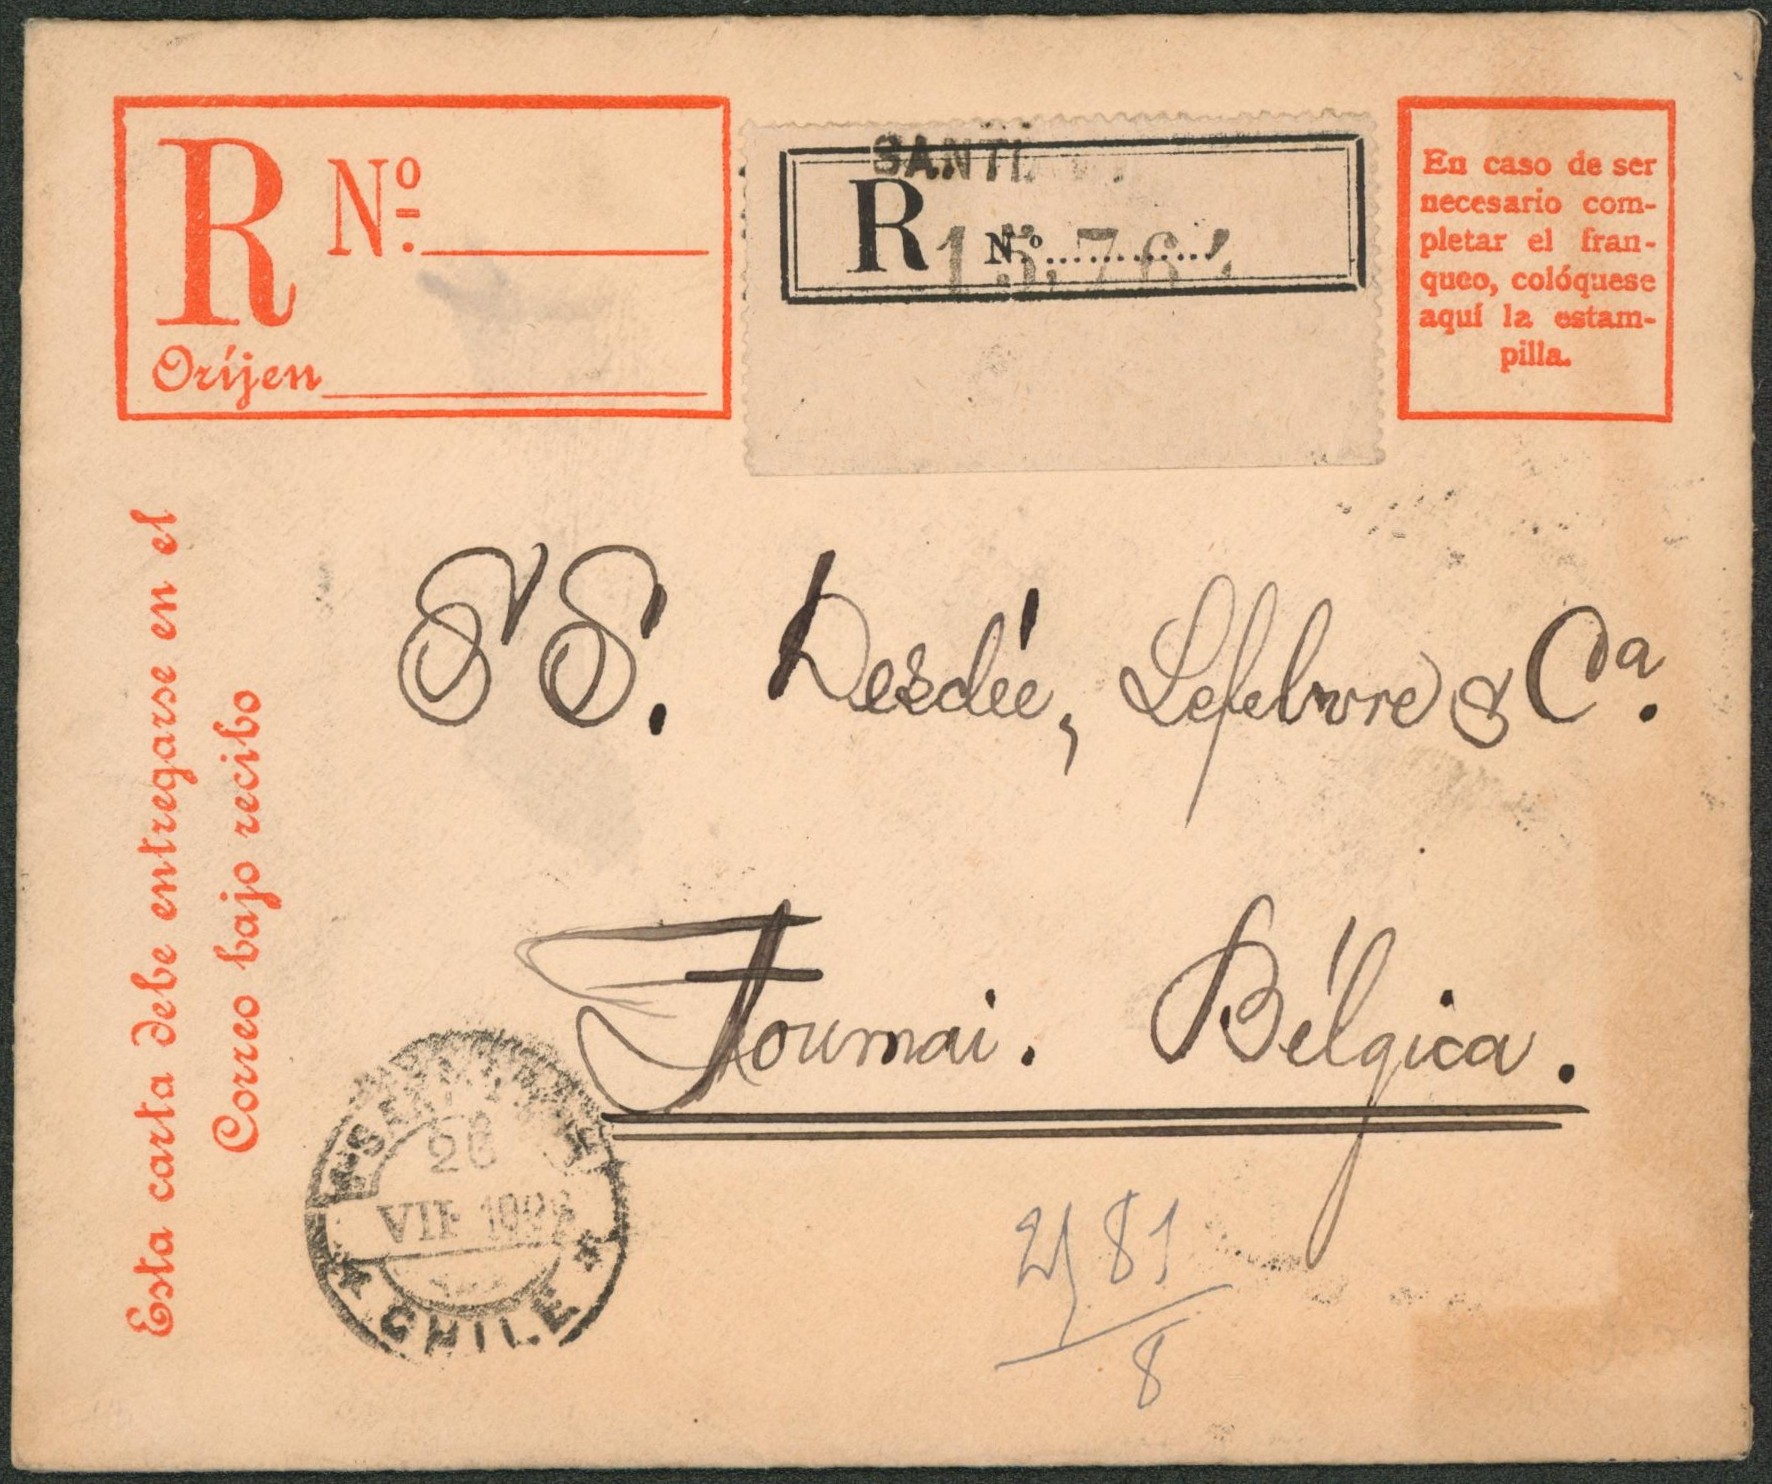 R Nº
Oríjen
R N.º
En caso de ser
necesario com-
pletar el fran-
queo, colóquese
aquí la estam-
pilla.
Esta carta debe entregarse en el
Correo bajo recibo
SS. Desclée, Lefebvre & Cª.
Tournai. Bélgica.
26
VII
CHILE
81
8